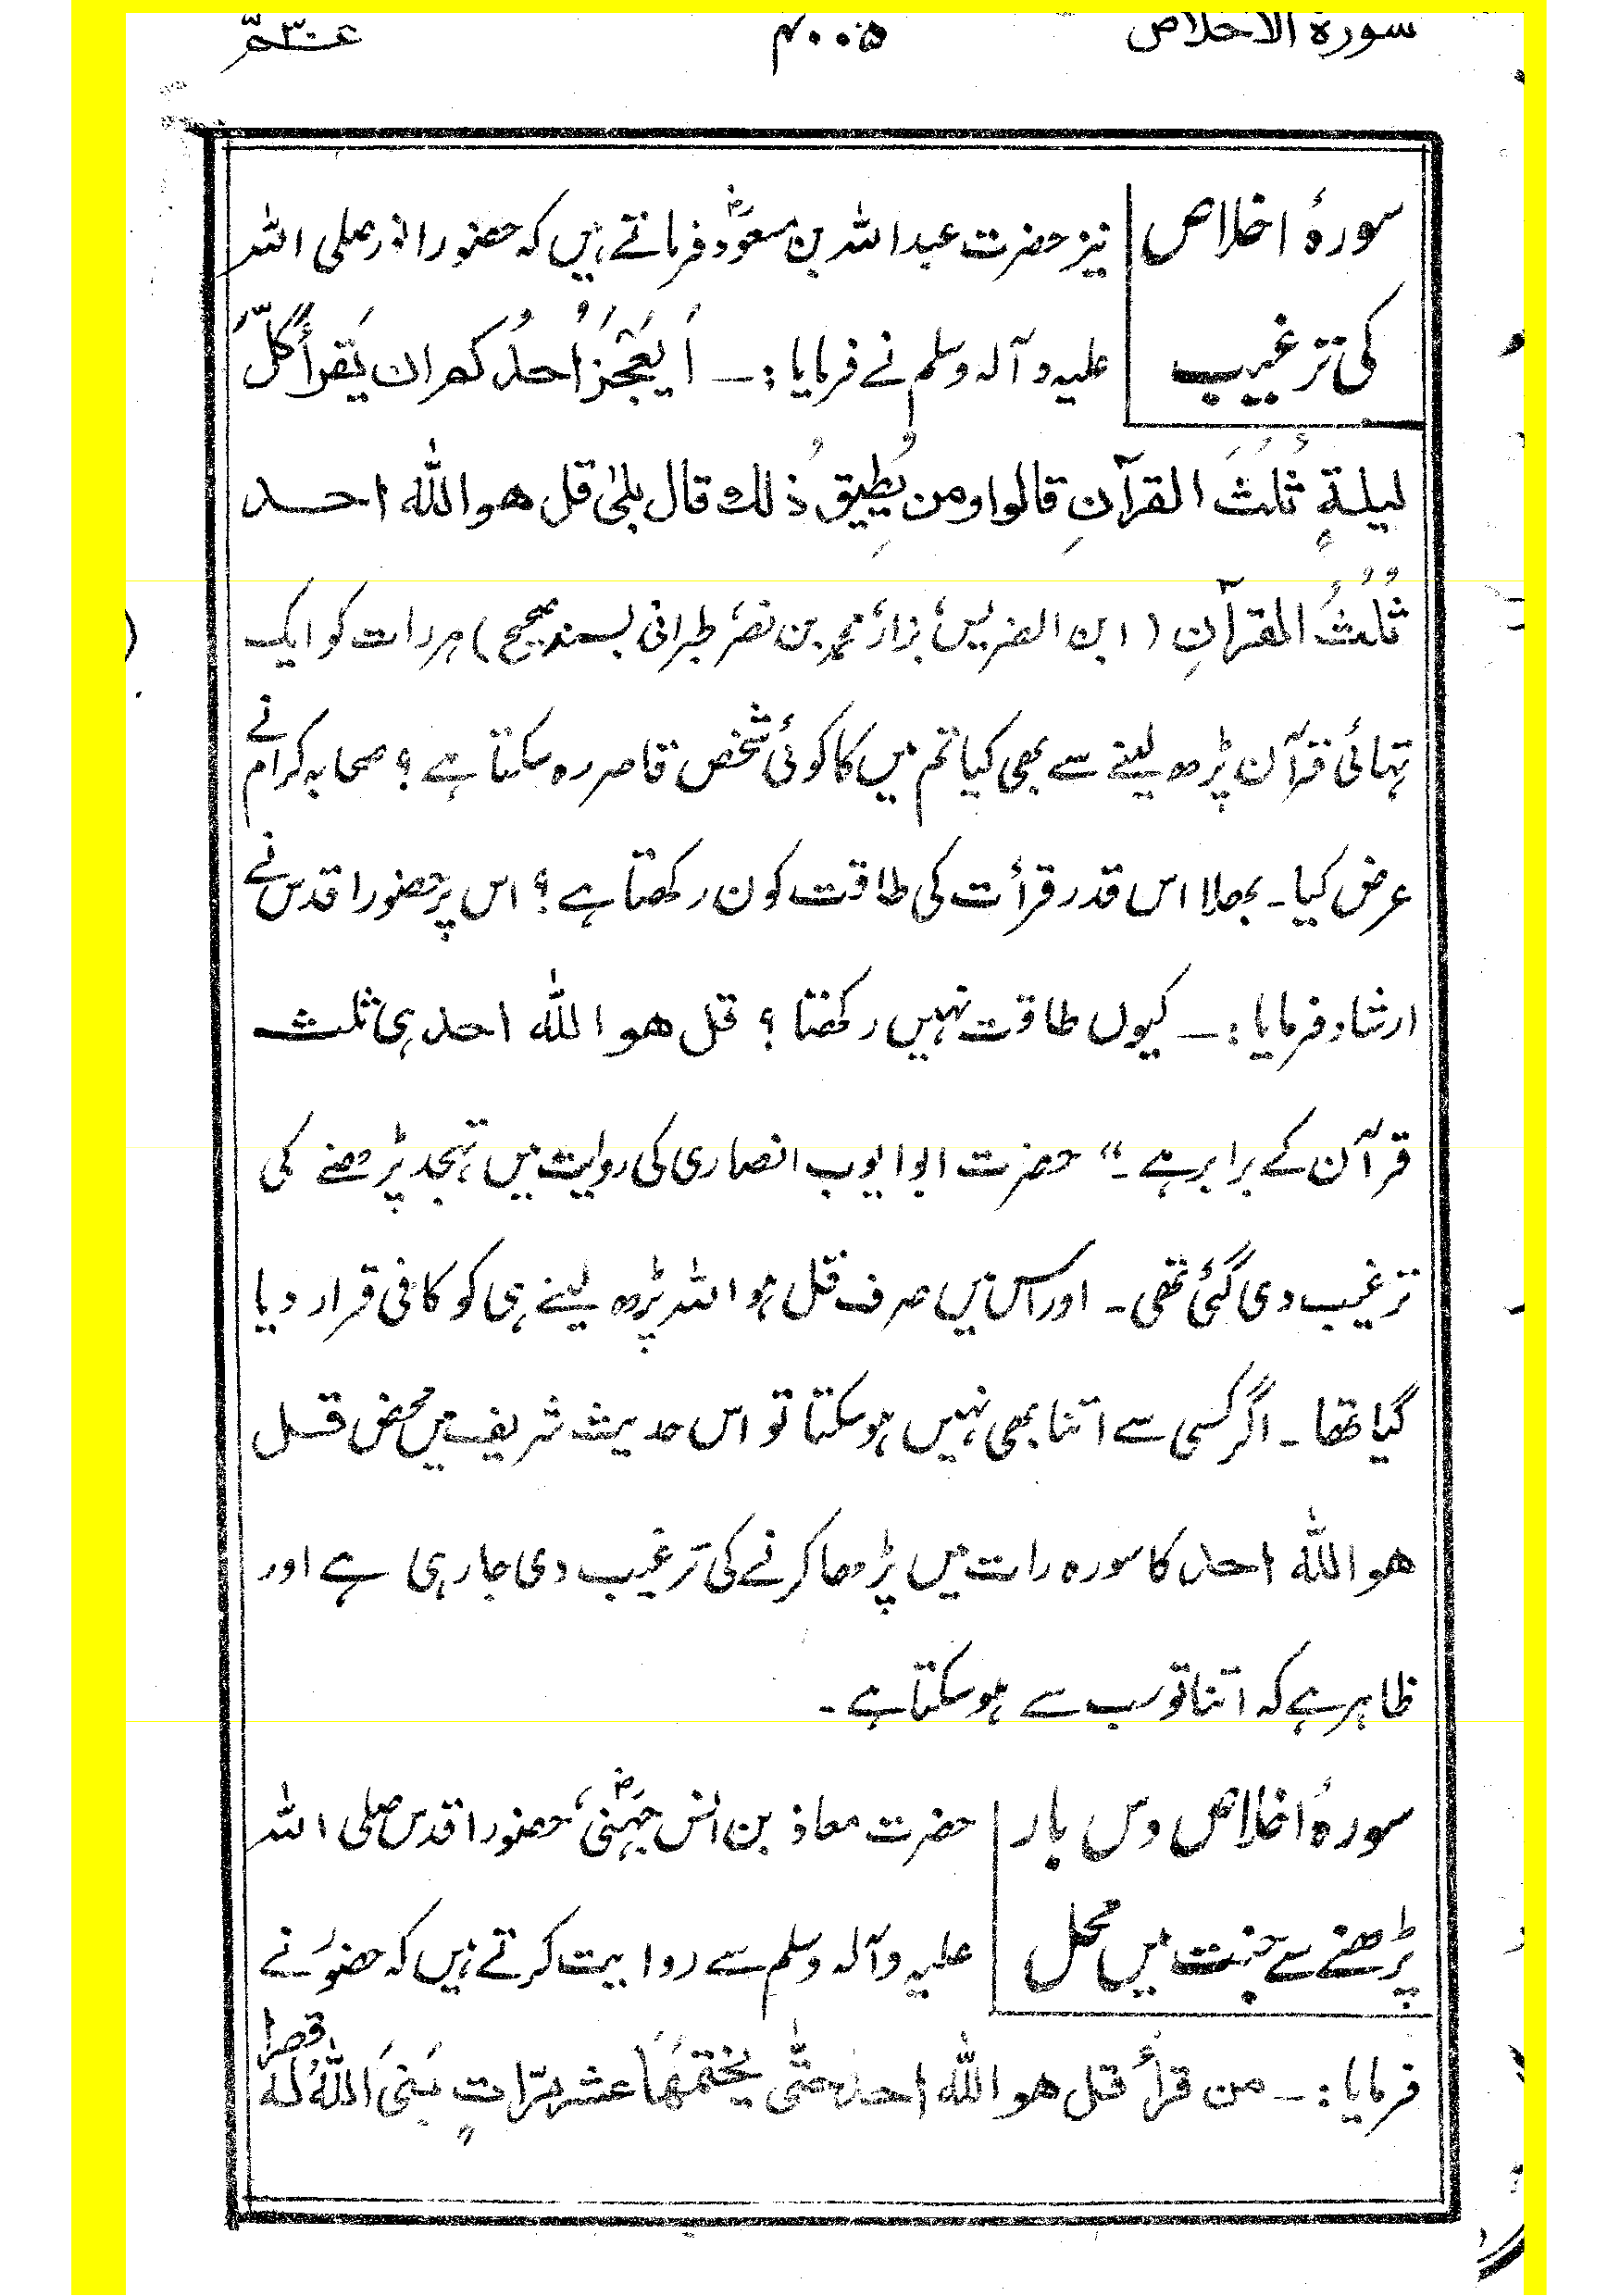 سورة الاخلاص ۴۰۰۵ عــمّ ۳۰
سورۂ اخلاص نیز حضرت عبداللہ بن مسعودؓ فرماتے ہیں کہ حضور انور صلی اللہ
کی ترغیب علیہ وآلہ وسلم نے فرمایا:۔ اَیَعۡجَزُ احدُکم ان یَقرأ کُلَّ
لیلۃٍ ثُلُثَ القرآنِ قالوا ومن یُطِیقُ ذٰلك قال بلیٰ قل هو اللّٰه احــد
ثُلُثُ القرآنِ (ابن الضریس، بزار، محمد بن نصر، طبرانی بسند صحیح) ہر رات کو ایک
تہائی قرآن پڑھ لینے سے بھی کیا تم میں کا کوئی شخص قاصر رہ سکتا ہے؟ صحابہ کرام نے
عرض کیا۔ بھلا اس قدر قرأت کی طاقت کون رکھتا ہے؟ اس پر حضور اقدس نے
ارشاد فرمایا:۔ کیوں طاقت نہیں رکھتا؟ قل هو اللّٰه احد ہی ثلث
قرآن کے برابر ہے۔“ حضرت ابو ایوب انصاری کی روایت میں تہجد پڑھنے کی
ترغیب دی گئی تھی۔ اور اس میں صرف قل ہو اللہ پڑھ لینے ہی کو کافی قرار دیا
گیا تھا۔ اگر کسی سے اتنا بھی نہیں ہو سکتا تو اس حدیث شریف میں محض قــل
هو اللّٰه احد کا سورہ رات میں پڑھا کرنے کی ترغیب دی جا رہی ہے اور
ظاہر ہے کہ اتنا تو سب سے ہو سکتا ہے۔
سورۂ اخلاص دس بار حضرت معاذ بن انس جہنیؓ، حضور اقدس صلی اللہ
پڑھنے سے جنت میں محل علیہ وآلہ وسلم سے روایت کرتے ہیں کہ حضورؐ نے
فرمایا:۔ من قرأ قل هو اللّٰه احد حتّٰی یختمَهَا عشر مرّاتٍ بَنَی اللّٰهُ لَهٗ قصرا